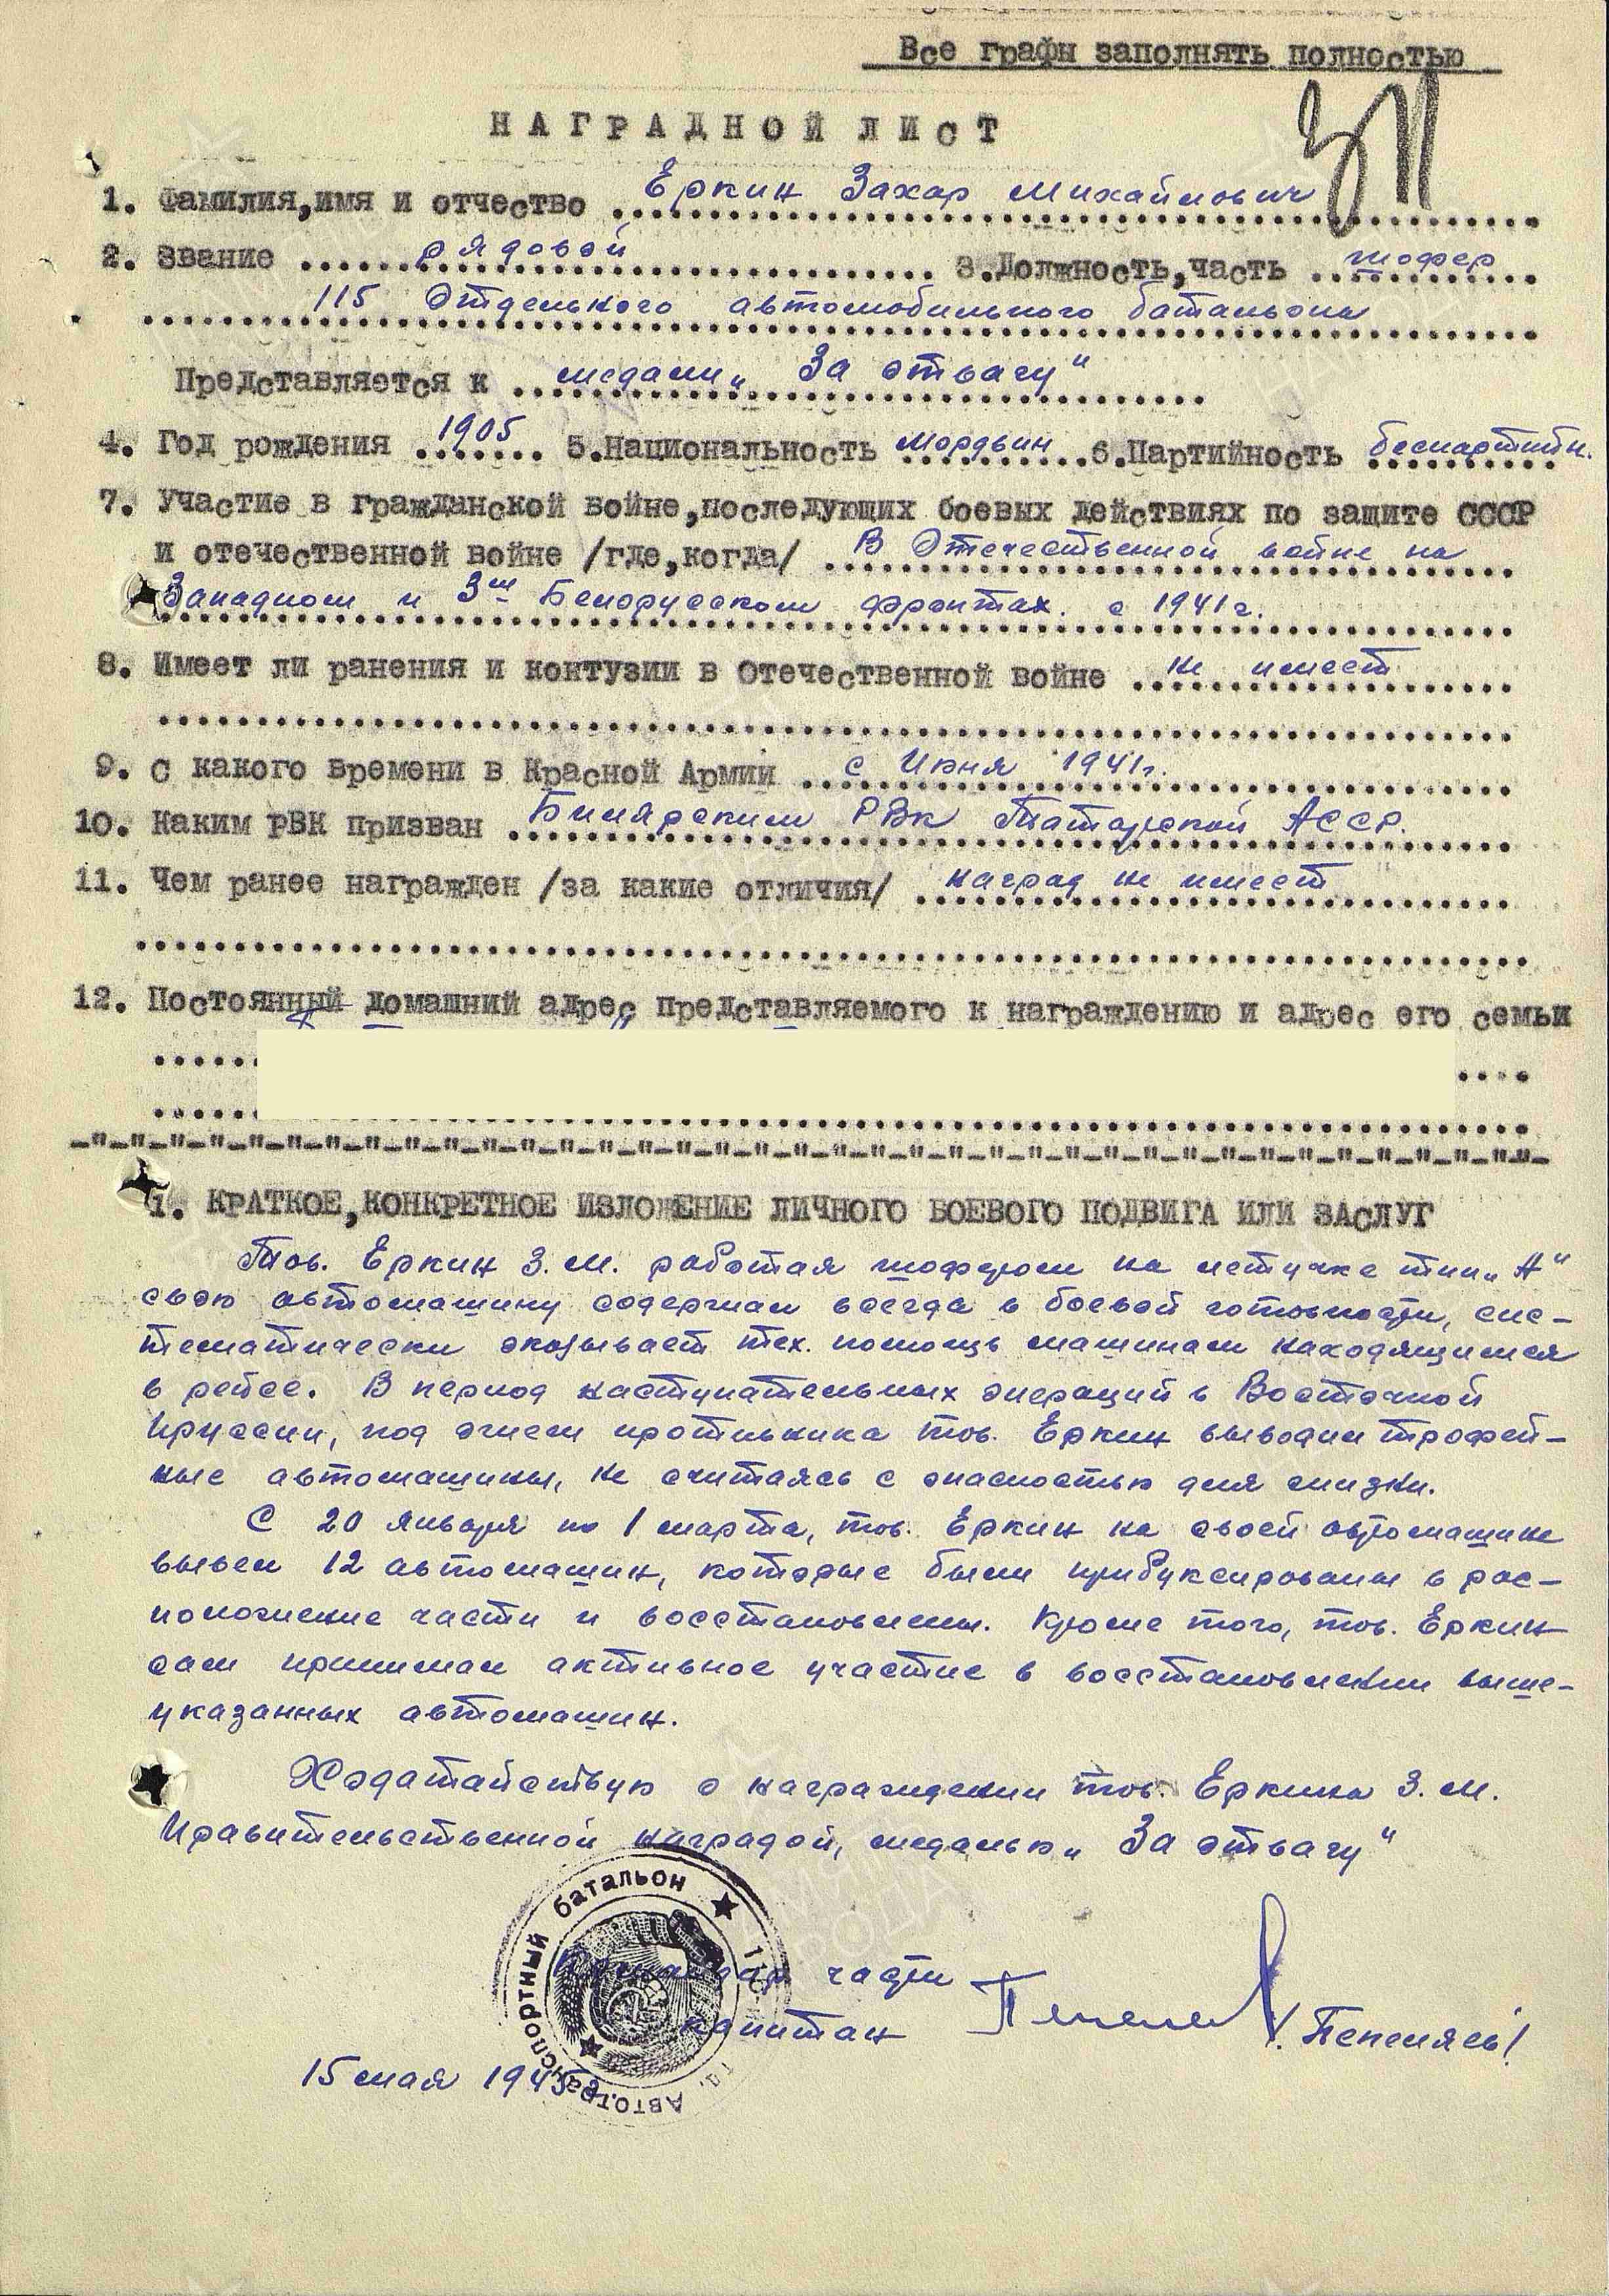 Все графы заполнять полностью
НАГРАДНОЙ ЛИСТ
1. Фамилия,имя и отчество Еркин Захар Михайлович
2. Звание рядовой 3.Должность,часть шофер
115 Отдельного автомобильного батальона
Представляется к медали „За отвагу"
4. Год рождения 1905 5.Национальность мордвин 6.Партийность беспартийн.
7. Участие в гражданской войне,последующих боевых действиях по защите СССР
и отечественной войне /где,когда/ В Отечественной войне на
Западном и 3м Белорусском фронтах. с 1941г.
8. Имеет ли ранения и контузии в Отечественной войне не имеет
9. С какого времени в Красной Армии с Июня 1941г.
10. Каким РВК призван Билярским РВК Татарской АССР.
11. Чем ранее награжден /за какие отличия/ наград не имеет
12. Постоянный домашний адрес представляемого к награждению и адрес его семьи
1. КРАТКОЕ,КОНКРЕТНОЕ ИЗЛОЖЕНИЕ ЛИЧНОГО БОЕВОГО ПОДВИГА ИЛИ ЗАСЛУГ
Тов. Еркин З.М. работая шофером на летучке тип „А"
свою автомашину содержал всегда в боевой готовности, сис-
тематически оказывает тех. помощь машинам находящимся
в рейсе. В период наступательных операций в Восточной
Пруссии, под огнем противника тов. Еркин выводил трофей-
ные автомашины, не считаясь с опасностью для жизни.
С 20 января по 1 марта, тов. Еркин на своей автомашине
вывел 12 автомашин, которые были прибуксированы в рас-
положение части и восстановлены. Кроме того, тов. Еркин
сам принимал активное участие в восстановлении выше-
указанных автомашин.
Ходатайствую о награждении тов. Еркина З.М.
Правительственной наградой, медалью „За отвагу"
Автотранспортный батальон
Командир части
капитан /Пепеляев/
15 мая 1945г.